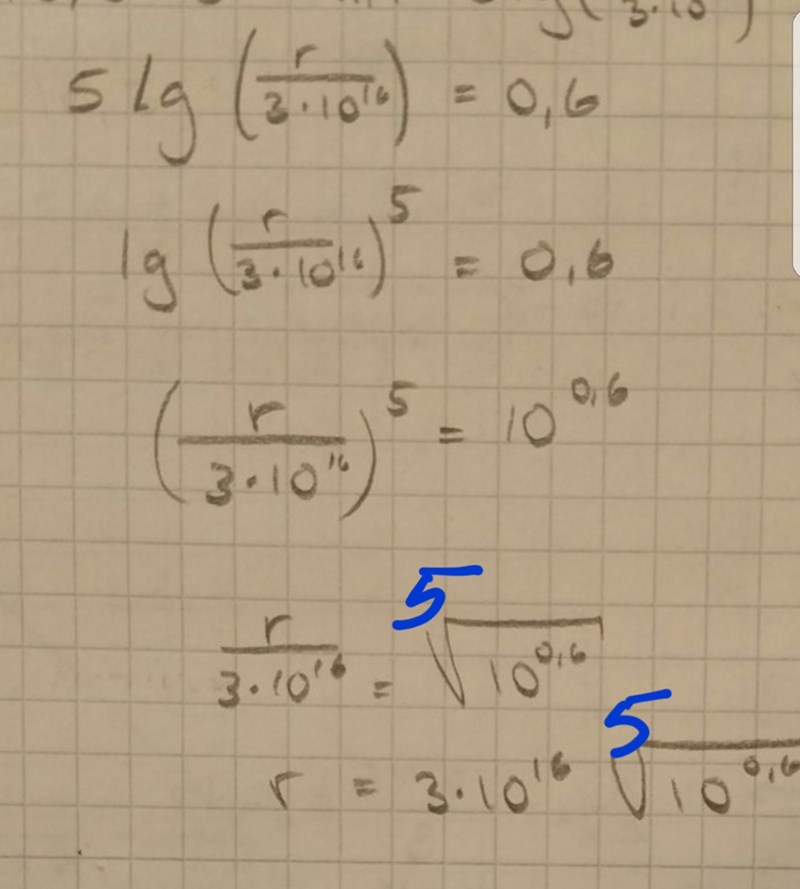 5 lg (r/(3·10¹⁶)) = 0,6
lg (r/(3·10¹⁶))⁵ = 0,6
(r/(3·10¹⁶))⁵ = 10⁰,⁶
r/(3·10¹⁶) = ⁵√(10⁰,⁶)
r = 3·10¹⁶ ⁵√(10⁰,⁶)